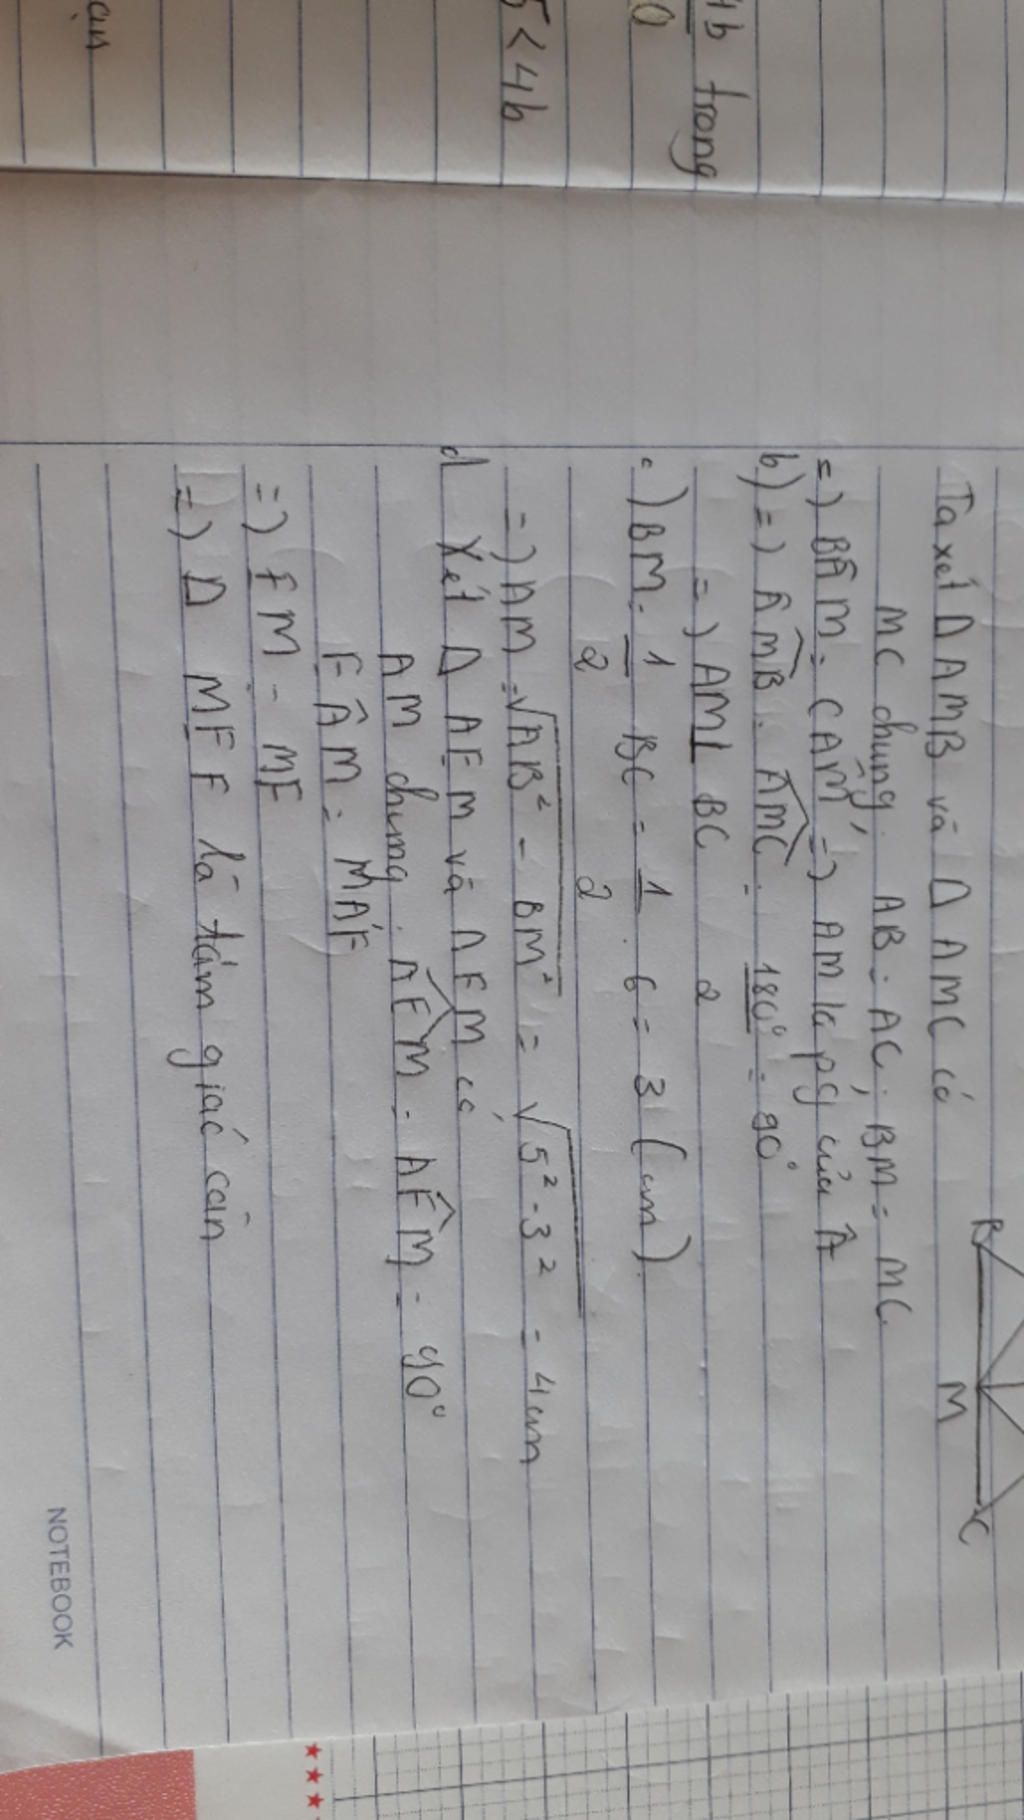 4b trong
0
5 < 4b
ạn
B
M
C
Ta xét Δ AMB và Δ AMC có
MC chung. AB = AC; BM = MC.
=) BÂM = CÂM =) AM là pg của Â
b) =) AMB = AMC = 180° = 90°
2
=) AM⊥ BC
c) BM = 1/2 BC = 1/2 . 6 = 3 (cm).
=) AM = √AB² - BM² = √5² - 3² = 4cm
d Xét Δ AEM và Δ AFM có
AM chung. AEM = AFM = 90°
EÂM = MÂF
=) EM = MF
=) Δ MEF là tám giác cân
NOTEBOOK